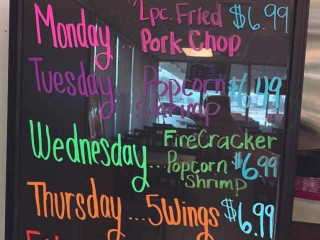 Monday... 2pc. Fried $6.99
Pork Chop
Tuesday... Popcorn $6.99
Shrimp
Wednesday... FireCracker
Popcorn $6.99
Shrimp
Thursday... 5Wings $6.99